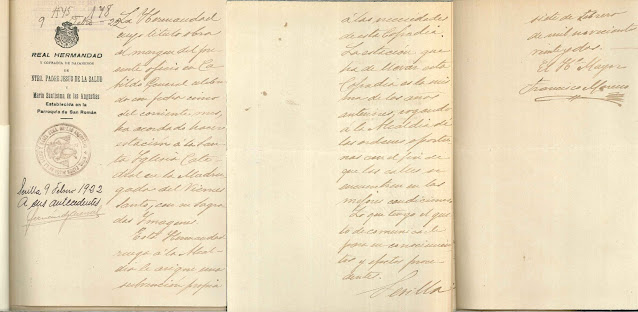 9 A45 178
Feb° - 22
REAL HERMANDAD
Y COFRADIA DE NAZARENOS
DE
NTRO. PADRE JESUS DE LA SALUD
Y
Maria Santisima de las Angustias
Establecida en la
Parroquia de San Román
Sevilla 9 Febrero 1922
A sus antecedentes
La Hermandad
cuyo titulo obra
al margen del pre
sente oficio en Ca
bildo General celebra
do con fecha cinco
del corriente mes,
ha acordado hacer
estacion a la San
ta Iglesia Cate
dral en la Madru
gada del Viernes
Santo, con su Sagra
das Imagenes.
Esta Hermandad
ruega a la Alcal
dia le asigne una
subvención propia
a las necesidades
de esta Cofradia.
La estacion que
ha de llevar esta
Cofradia es la mis
ma de los años
anteriores, rogando
a la Alcaldia de
las ordenes oportu
nas con el fin de
que las calles se
encuentren en las
mejores condiciones.
Lo que tengo el gus
to de comunicarle
para su conocimien
to y efectos proce
dentes.
Sevilla
siete de Febrero
de mil novecientos
veintydos.
El Hº Mayor
Francisco Moreno